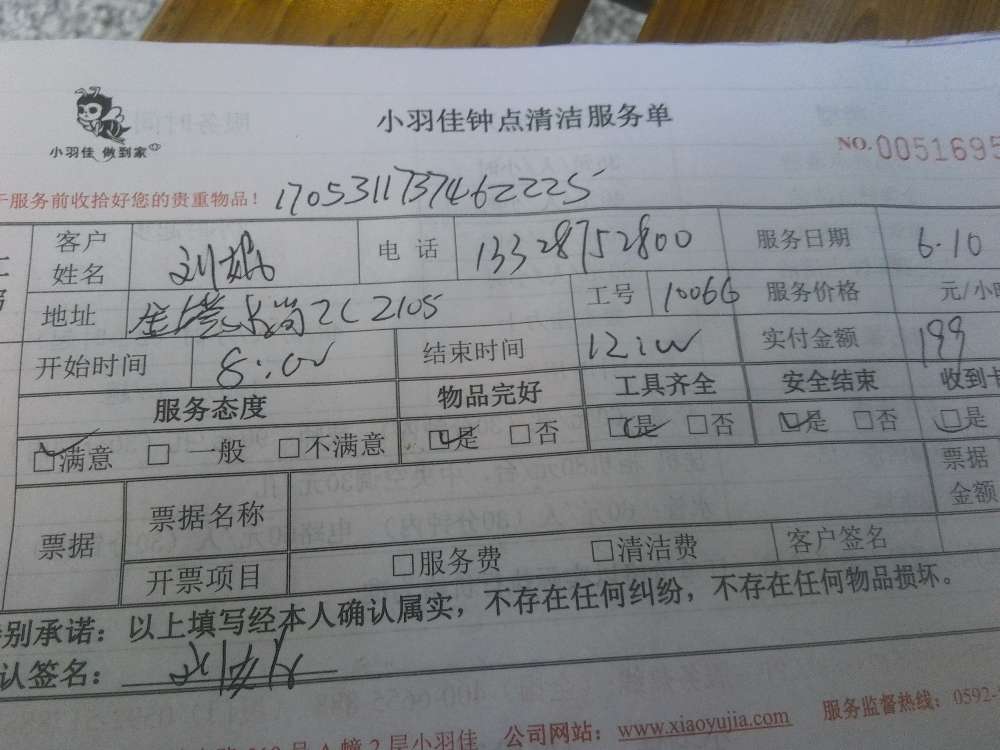 小羽佳 做到家
小羽佳钟点清洁服务单
NO. 0051695
服务前收拾好您的贵重物品! 170531173746 2225
客户姓名 刘 电话 13328752800 服务日期 6.10
地址 2105 工号 10066 服务价格 元/小时
开始时间 8:00 结束时间 12:00 实付金额 199
服务态度 物品完好 工具齐全 安全结束 收到卡
□满意 □一般 □不满意 □是 □否 □是 □否 □是 □否 □是
票据 票据名称 票据金额
开票项目 □服务费 □清洁费 客户签名
别承诺：以上填写经本人确认属实，不存在任何纠纷，不存在任何物品损坏。
认签名：
2层小羽佳 公司网站：www.xiaoyujia.com 服务监督热线：0592-